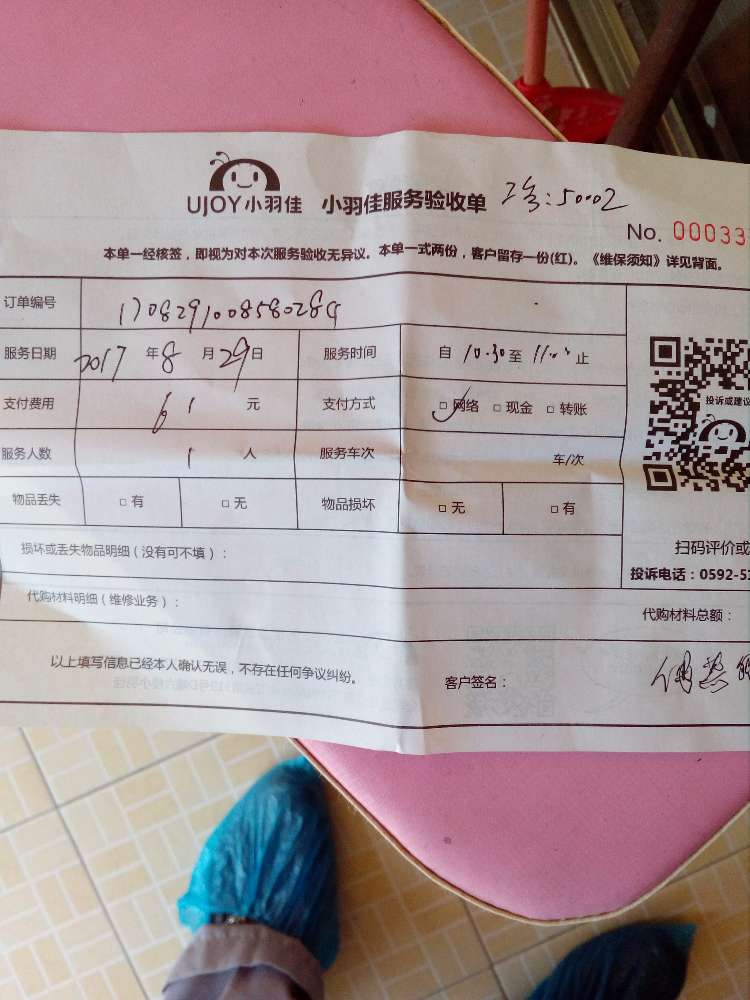 UJOY小羽佳 小羽佳服务验收单 工号:50002
No. 00033
本单一经核签，即视为对本次服务验收无异议。本单一式两份，客户留存一份(红)。《维保须知》详见背面。
订单编号 170829100858028
服务日期 2017 年 8 月 29 日 服务时间 自 10.30 至 11. 止
支付费用 61 元 支付方式 □ 网络 □ 现金 □ 转账
投诉或建议
服务人数 1 人 服务车次 车/次
物品丢失 □ 有 □ 无 物品损坏 □ 无 □ 有
损坏或丢失物品明细（没有可不填）：
扫码评价或
投诉电话：0592-5
代购材料明细（维修业务）：
代购材料总额：
以上填写信息已经本人确认无误，不存在任何争议纠纷。
客户签名：